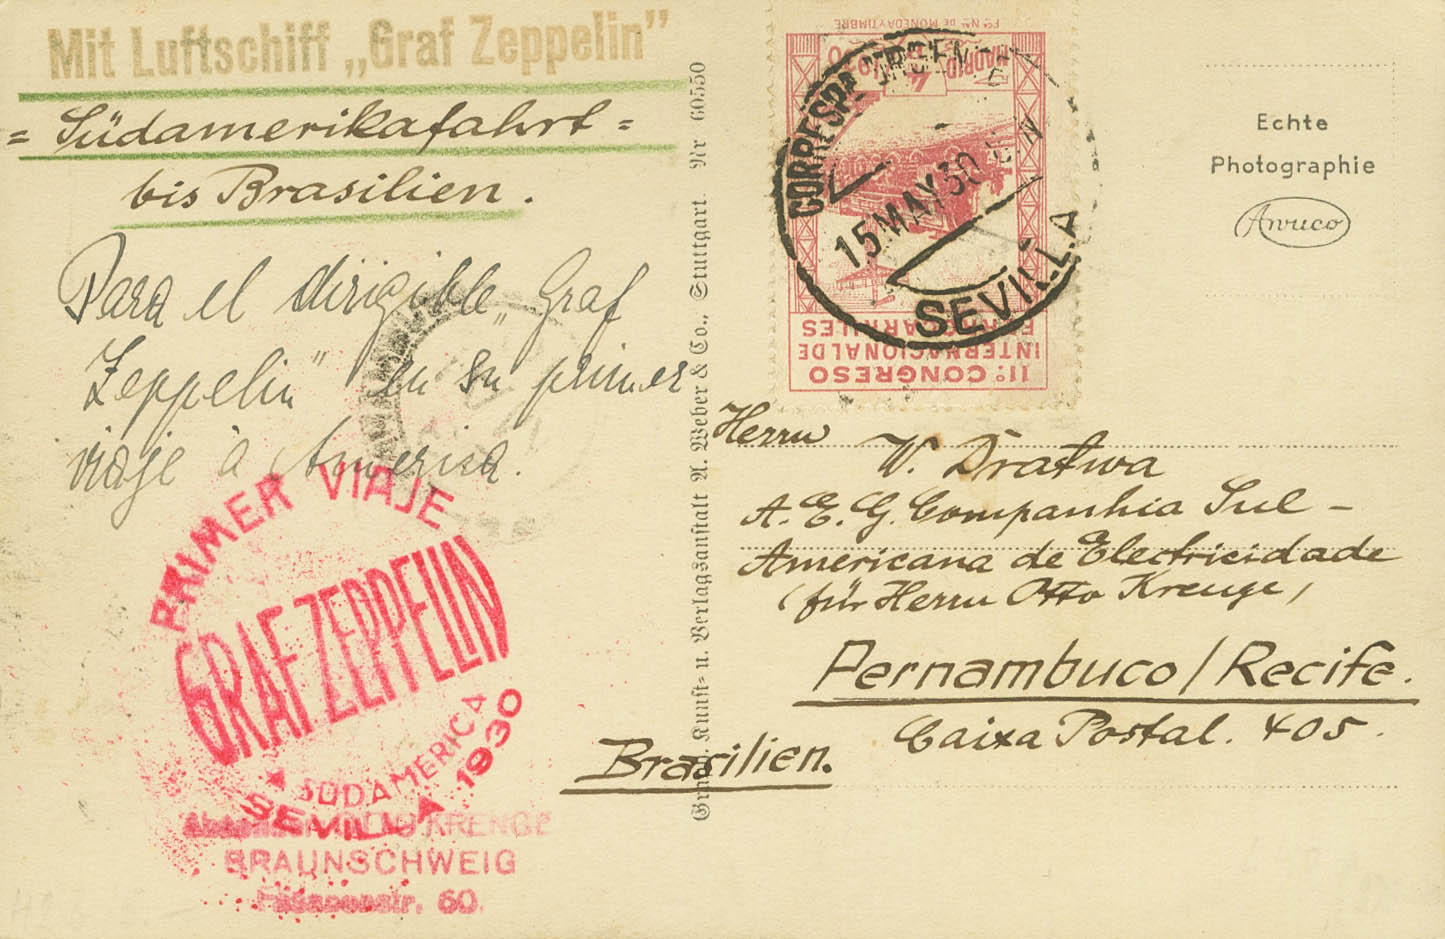 Mit Luftschiff „Graf Zeppelin”
= Südamerikafahrt =
bis Brasilien.
Para el dirigible „Graf
Zeppelin” en su primer
viaje à America.
PRIMER VIAJE
GRAF ZEPPELIN
SUDAMERICA
SEVILLA 1930
OTTO KRENGE
BRAUNSCHWEIG
60.
Kunst- u. Verlagsanstalt A. Weber & Co., Stuttgart. Nr 60550
Fca Nal DE MONEDA Y TIMBRE
MADRID
1930
11º CONGRESO
INTERNACIONAL DE
FERROCARRILES
CORRESPONDENCIA
15 MAY 30
SEVILLA
Echte
Photographie
Herrn
W. Dratwa
A. E. G. Companhia Sul-
Americana de Electricidade
(für Herrn Otto Krenge)
Pernambuco / Recife.
Caixa Postal. 405.
Brasilien.